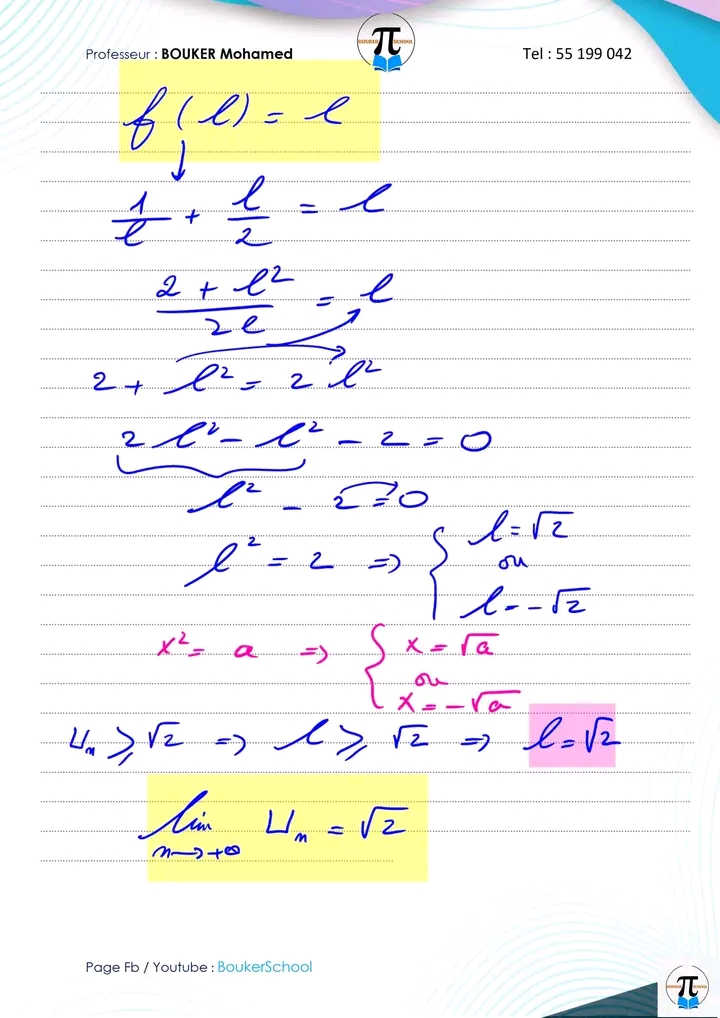 Professeur : BOUKER Mohamed
BOUKER π SCHOOL
Tel : 55 199 042
f(l) = l
1/l + l/2 = l
(2 + l²)/(2l) = l
2 + l² = 2 l²
2 l² - l² - 2 = 0
l² - 2 = 0
l² = 2 => { l = √2
ou
l = -√2
x² = a => { x = √a
ou
x = -√a
Uₙ ⩾ √2 => l ⩾ √2 => l = √2
lim Uₙ = √2
n → +∞
Page Fb / Youtube : BoukerSchool
BOUKER π SCHOOL